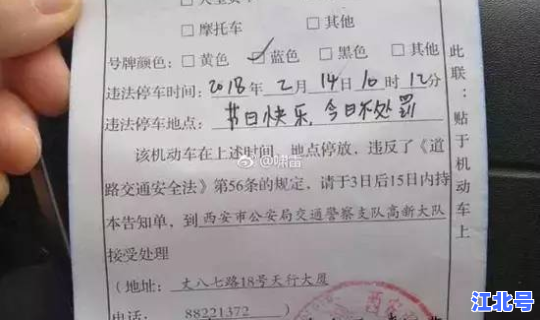 □ 摩托车 □ 其他
号牌颜色: □ 黄色 ☑ 蓝色 □ 黑色 □ 其他
违法停车时间: 2018 年 2 月 14 日 10 时 12 分
违法停车地点: 节日快乐,今日不处罚
该机动车在上述时间、地点停放,违反了《道
路交通安全法》第56条的规定,请于3日后15日内持
本告知单,到 西安市公安局交通警察支队高新大队
接受处理
(地址: 丈八七路18号天行大厦
电话: 88221372 )
此联:贴于机动车上
@啸吾
江北号